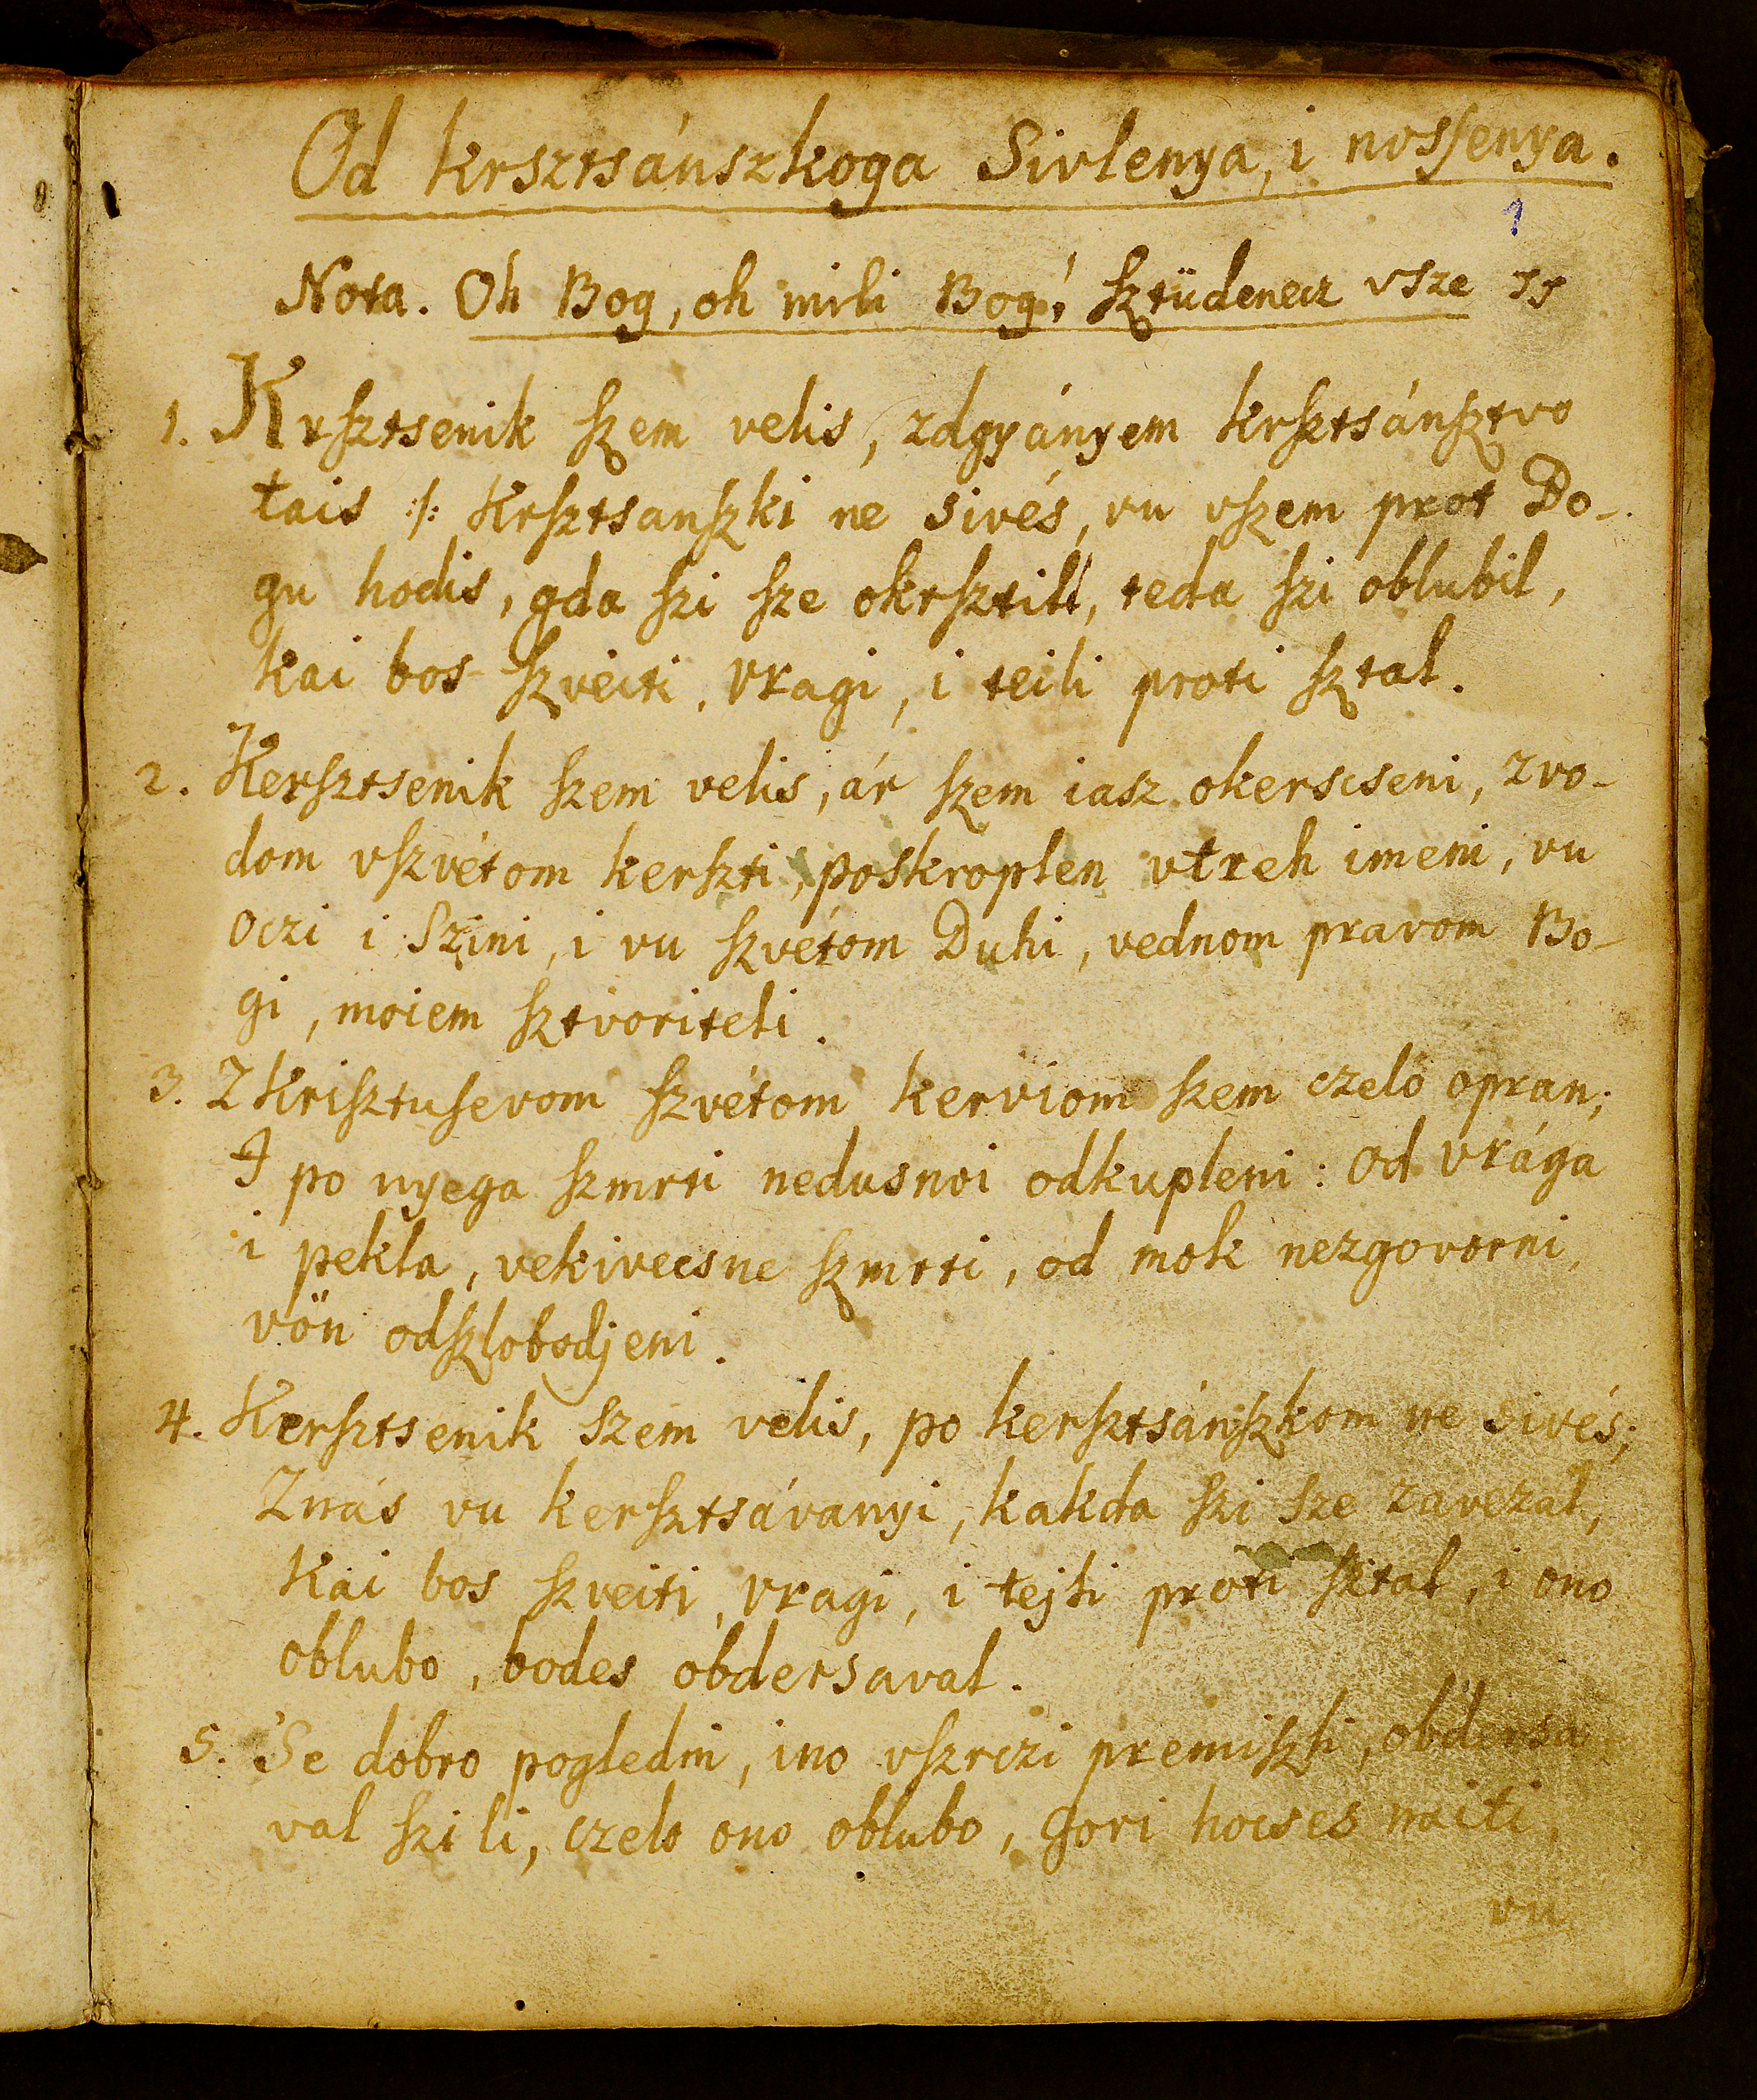 Od krsztsánszkoga Sivlenya, i nosſenya.
1
Nota. Oh Bog, oh mili Bog! ſztüdenecz vsze
1. Krſztsenik ſzem velis, zdgyányem krſztsánſztvo
tais :/: Krſztsanſzki ne sivés, vu vſzem prot Bo-
gu hodis, gda ſzi ſze okrſztill, teda ſzi oblubil,
kai bos ſzveiti, vragi, i teili proti ſztal.
2. Kerſztsenik ſzem velis, ár ſzem iasz okerscseni, zvo-
dom vſzvétom kerſzti, poskroplen vtreh imeni, vu
Oczi i Szini, i vu ſzvétom Duhi, vednom pravom Bo-
gi, moiem ſztvoriteli.
3. Z Kriſztuſevom ſzvétom kerviom ſzem czelo opran;
I po nyega ſzmrti nedusnoi odkupleni: od vrága
i pekla, vekivecsne ſzmrti, od mok nezgovorni,
vön odſzlobodjeni.
4. Kerſztsenik szem velis, po kerſztsánſzkom ne sivés;
Znás vu kerſztsávanyi, kakda ſzi sze zavezal,
Kai bos ſzveiti, vragi, i tejli proti ſztal, i ono
oblubo, bodes obdersaval.
5. Se dobro pogledni, ino vſzrczi premiſzli, obdersa
val ſzi li, czelo ono oblubo, gori hocses naiti,
vu